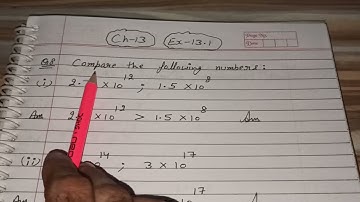 Ch-13 Ex-13.1
Q8 Compare the following numbers:
(i) 2. ×10¹² ; 1.5 ×10⁸
Ans 2. ×10¹² > 1.5 ×10⁸ Ans
(ii) 0¹⁴ ; 3 ×10¹⁷
17